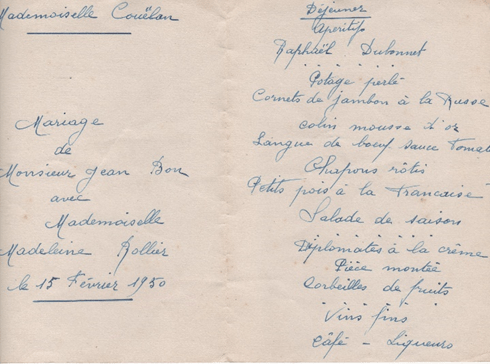 Mademoiselle Couëlan
Mariage
de
Monsieur Jean Bon
avec
Mademoiselle
Madeleine Rollier
le 15 Février 1950
Déjeuner
Aperitifs
Raphaël Dubonnet
Potage perlé
Cornets de jambon à la Russe
Colin mousse d'or
Langue de bœuf sauce Tomat
Chapons rôtis
Petits pois à la Francaise
Salade de saison
Diplomates à la crème
Pièce montée
Corbeilles de fruits
Vins fins
Câfé - Liqueurs